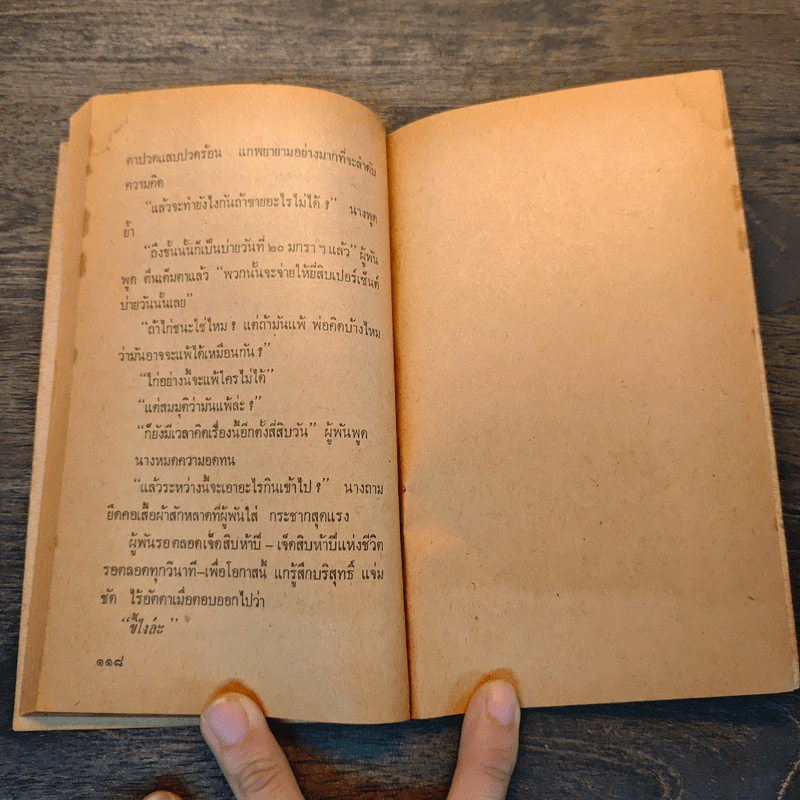 ตาปวดแสบปวดร้อน แกพยายามอย่างมากที่จะลำดับ
ความคิด
“แล้วจะทำยังไงกันถ้าขายอะไรไม่ได้ ?” นางพูด
ย้ำ
“ถึงขั้นนั้นก็เป็นบ่ายวันที่ ๒๐ มกรา ฯ แล้ว” ผู้พัน
พูด ตื่นเต็มตาแล้ว “พวกนั้นจะจ่ายให้ยี่สิบเปอร์เซ็นต์
บ่ายวันนั้นเลย”
“ถ้าไก่ชนะใช่ไหม ? แต่ถ้ามันแพ้ พ่อคิดบ้างไหม
ว่ามันอาจจะแพ้ได้เหมือนกัน ?”
“ไก่อย่างนี้จะแพ้ใครไม่ได้”
“แต่สมมุติว่ามันแพ้ล่ะ ?”
“ก็ยังมีเวลาคิดเรื่องนี้อีกตั้งสี่สิบวัน” ผู้พันพูด
นางหมดความอดทน
“แล้วระหว่างนี้จะเอาอะไรกินเข้าไป ?” นางถาม
ยึดคอเสื้อผ้าสักหลาดที่ผู้พันใส่ กระชากสุดแรง
ผู้พันรอตลอดเจ็ดสิบห้าปี – เจ็ดสิบห้าปีแห่งชีวิต
รอตลอดทุกวินาที–เพื่อโอกาสนี้ แกรู้สึกบริสุทธิ์ แจ่ม
ชัด ไร้อัตตาเมื่อตอบออกไปว่า
“ขี้ไงล่ะ ”
๑๑๘